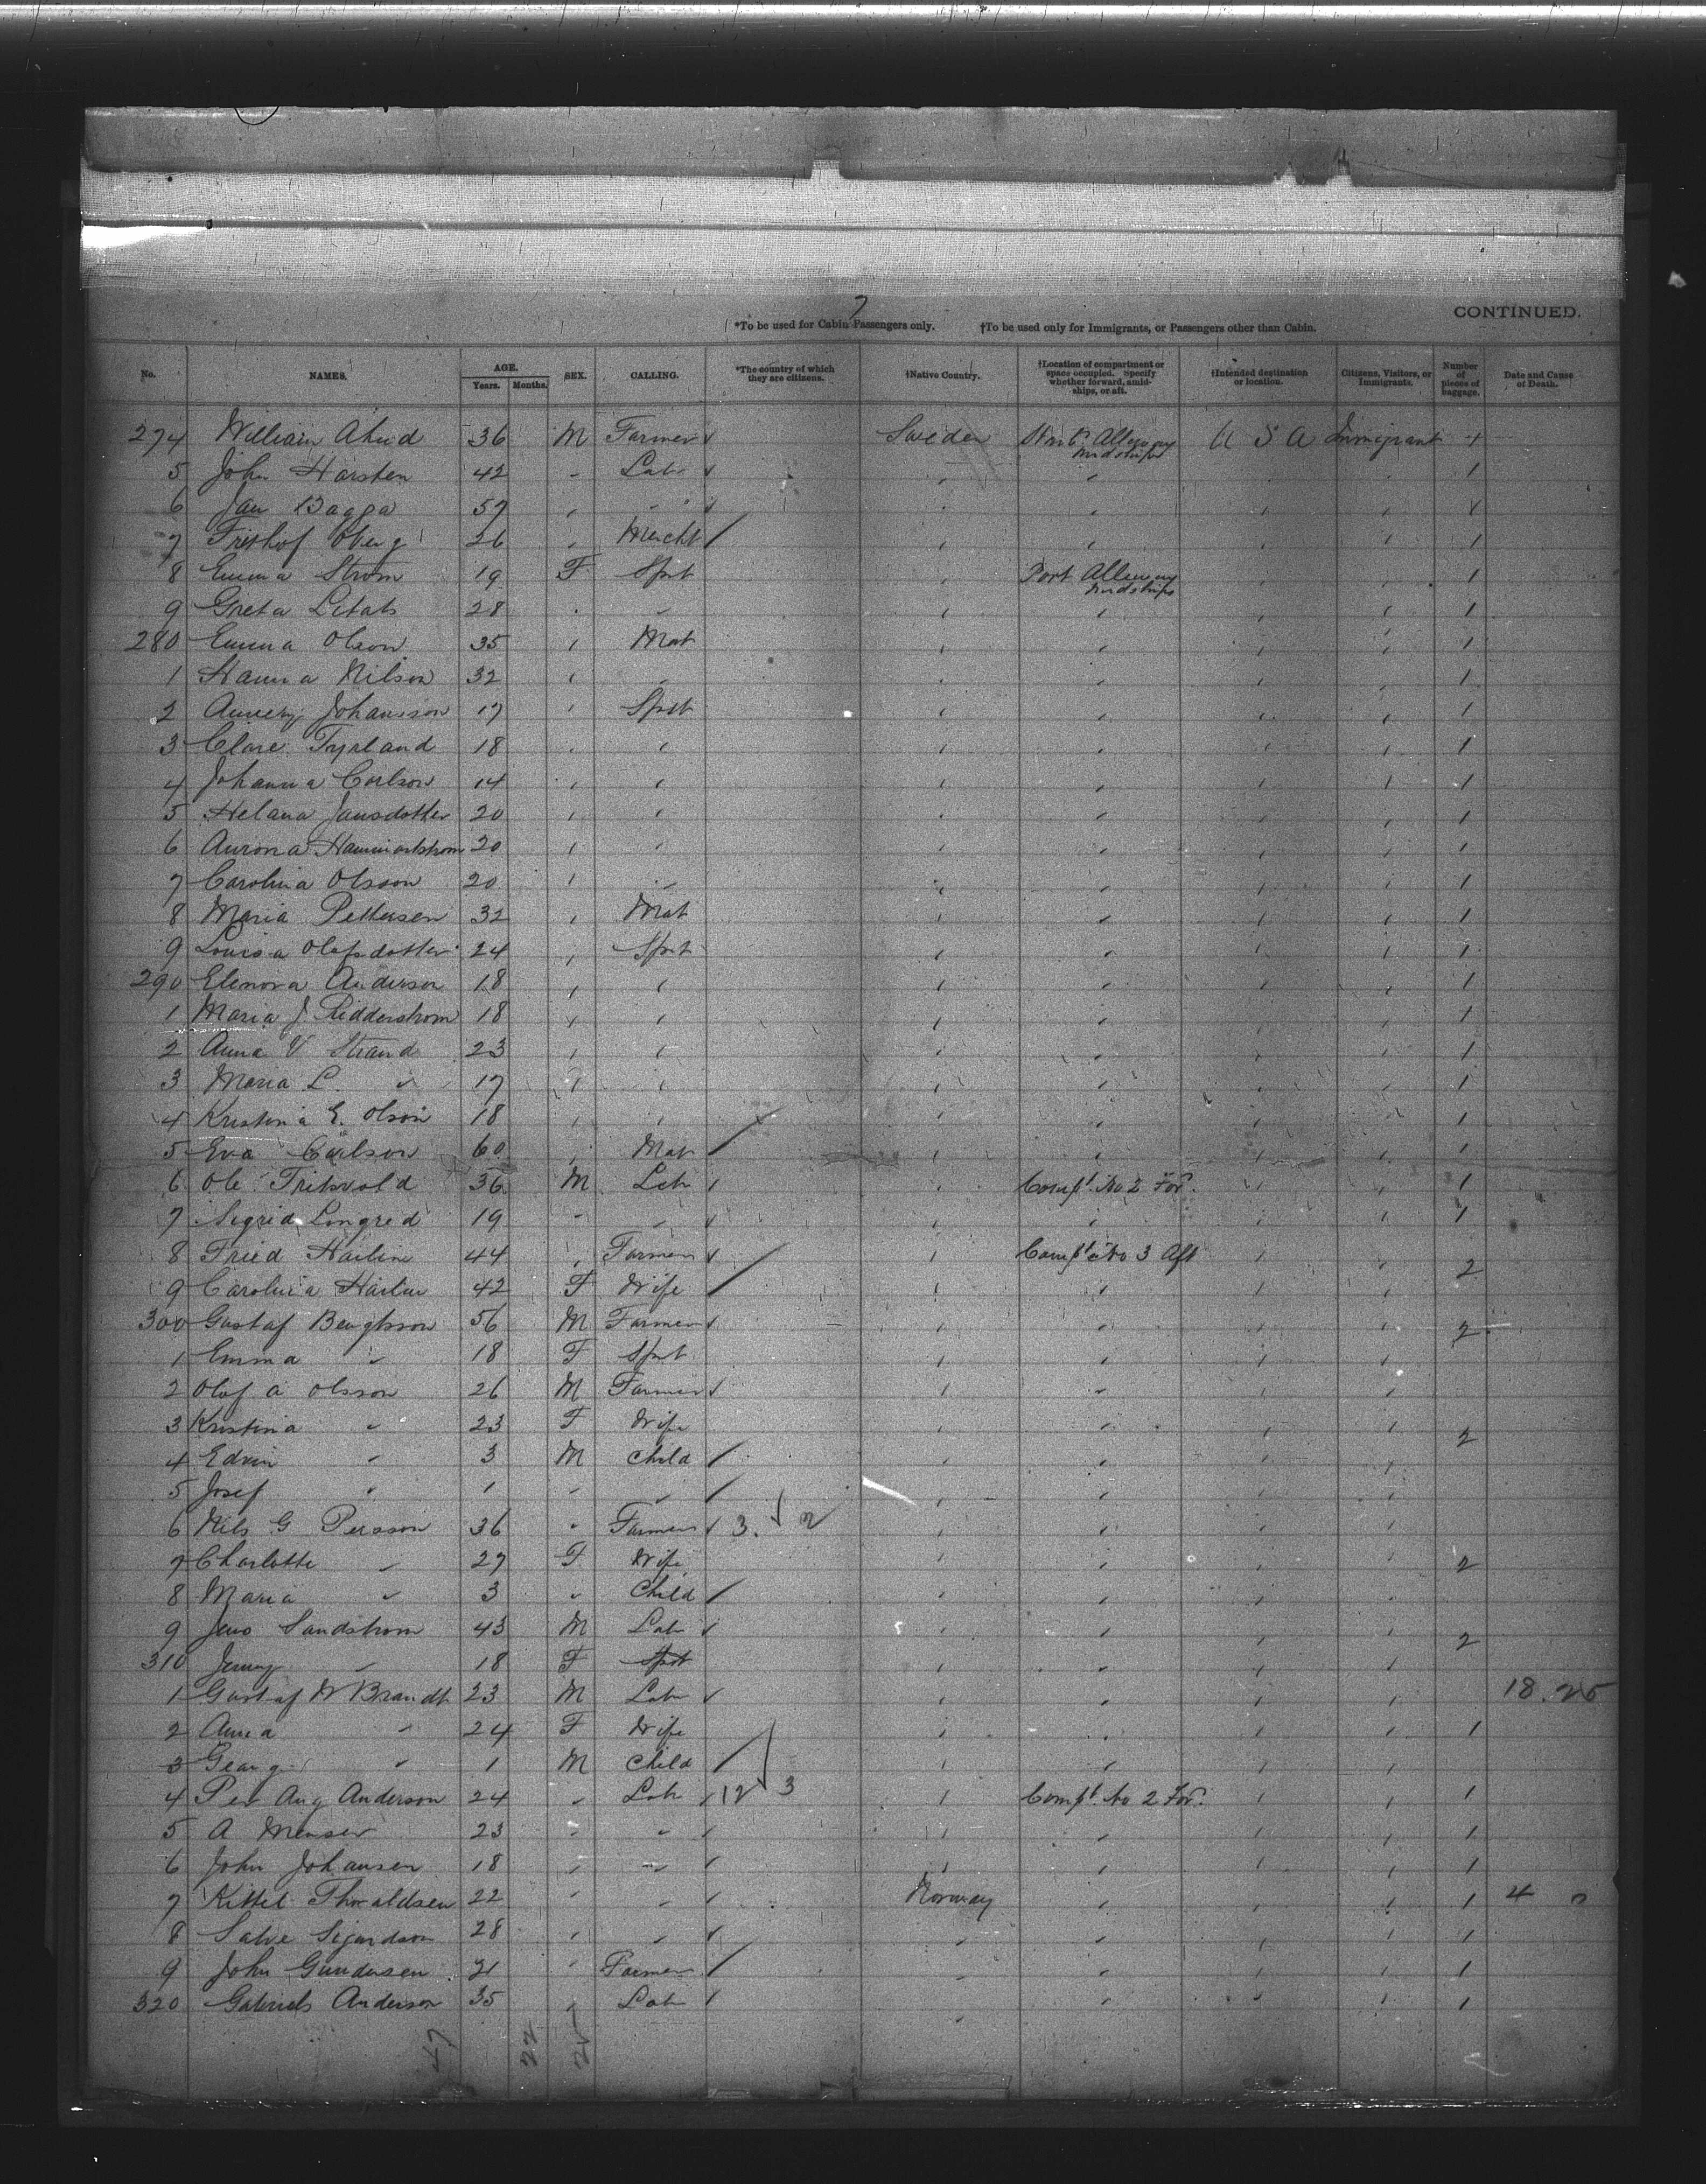 7
CONTINUED.
*To be used for Cabin Passengers only. †To be used only for Immigrants, or Passengers other than Cabin.
No. NAMES. AGE. Years. Months. SEX. CALLING. *The country of which they are citizens. †Native Country. †Location of compartment or space occupied. Specify whether forward, amidships, or aft. †Intended destination or location. Citizens, Visitors, or Immigrants. Number of pieces of baggage. Date and Cause of Death.
274 William 36 M Farmer Sweden midships U S A Immigrant 1
5 John Harsten 42 " Lab " " 1
6 Jan Bagga 57 " " " " 1
7 Frithof Oberg 26 " Mercht " " 1
8 Emma Strom 19 F Spst " Port Alleway midships 1
9 Greta 28 " " " " 1
280 Emma Olson 35 " Mat " " 1
1 Hanna Nilson 32 " " " " 1
2 Johansson 17 " Spst " " 1
3 Clare Tyrland 18 " " " " 1
4 Johanna Carlson 14 " " " " 1
5 Helana Jansdotter 20 " " " " 1
6 Aurora Hammarstrom 20 " " " " 1
7 Carolina Olsson 20 " " " " 1
8 Maria Pettersen 32 " Mat " " 1
9 Louisa Olofsdotter 24 " Spst " " 1
290 Elenora Anderson 18 " " " " 1
1 Maria J Ridderstrom 18 " " " " 1
2 Anna V Strand 23 " " " " 1
3 Maria L. " 17 " " " " 1
4 Kristina E. Olson 18 " " " " 1
5 Eva Carlson 60 " Mat " " 1
6 Ole 36 M Lab " Compt No 2 For. 1
7 Sigrid Longred 19 " " " " 1
8 Fried Hailin 44 " Farmer " Compt No 3 Aft 2
9 Carolina Hailin 42 F Wife " "
300 Gustaf Bengtsson 56 M Farmer " " 2
1 Emma " 18 F Spst " "
2 Olof A Olsson 26 M Farmer " "
3 Kristina " 23 F Wife " " 2
4 Edvin " 3 M Child " "
5 Josef " 1 " " " "
6 Nils G Persson 36 " Farmer 3. 2 " "
7 Charlotte " 27 F Wife " " 2
8 Maria " 3 " Child " "
9 Jens Sandstrom 43 M Lab " " 2
310 Jenny " 18 F Spst " "
1 Gustaf W Brandt 23 M Lab " " 18.25
2 Anna " 24 F Wife " " 1
3 Georg " 1 M Child " "
4 Per Aug Anderson 24 " Lab 12 3 " Compt No 2 For. 1
5 A Menser 23 " " " " 1
6 John Johansen 18 " " " " 1
7 Kittel Thoraldsen 22 " " Norway " 1 4 0
8 Salve Sigurdson 28 " " " " 1
9 John Gundersen 21 " Farmer " " 1
320 Gabriels Anderson 35 " Lab " " 1
47 22 25